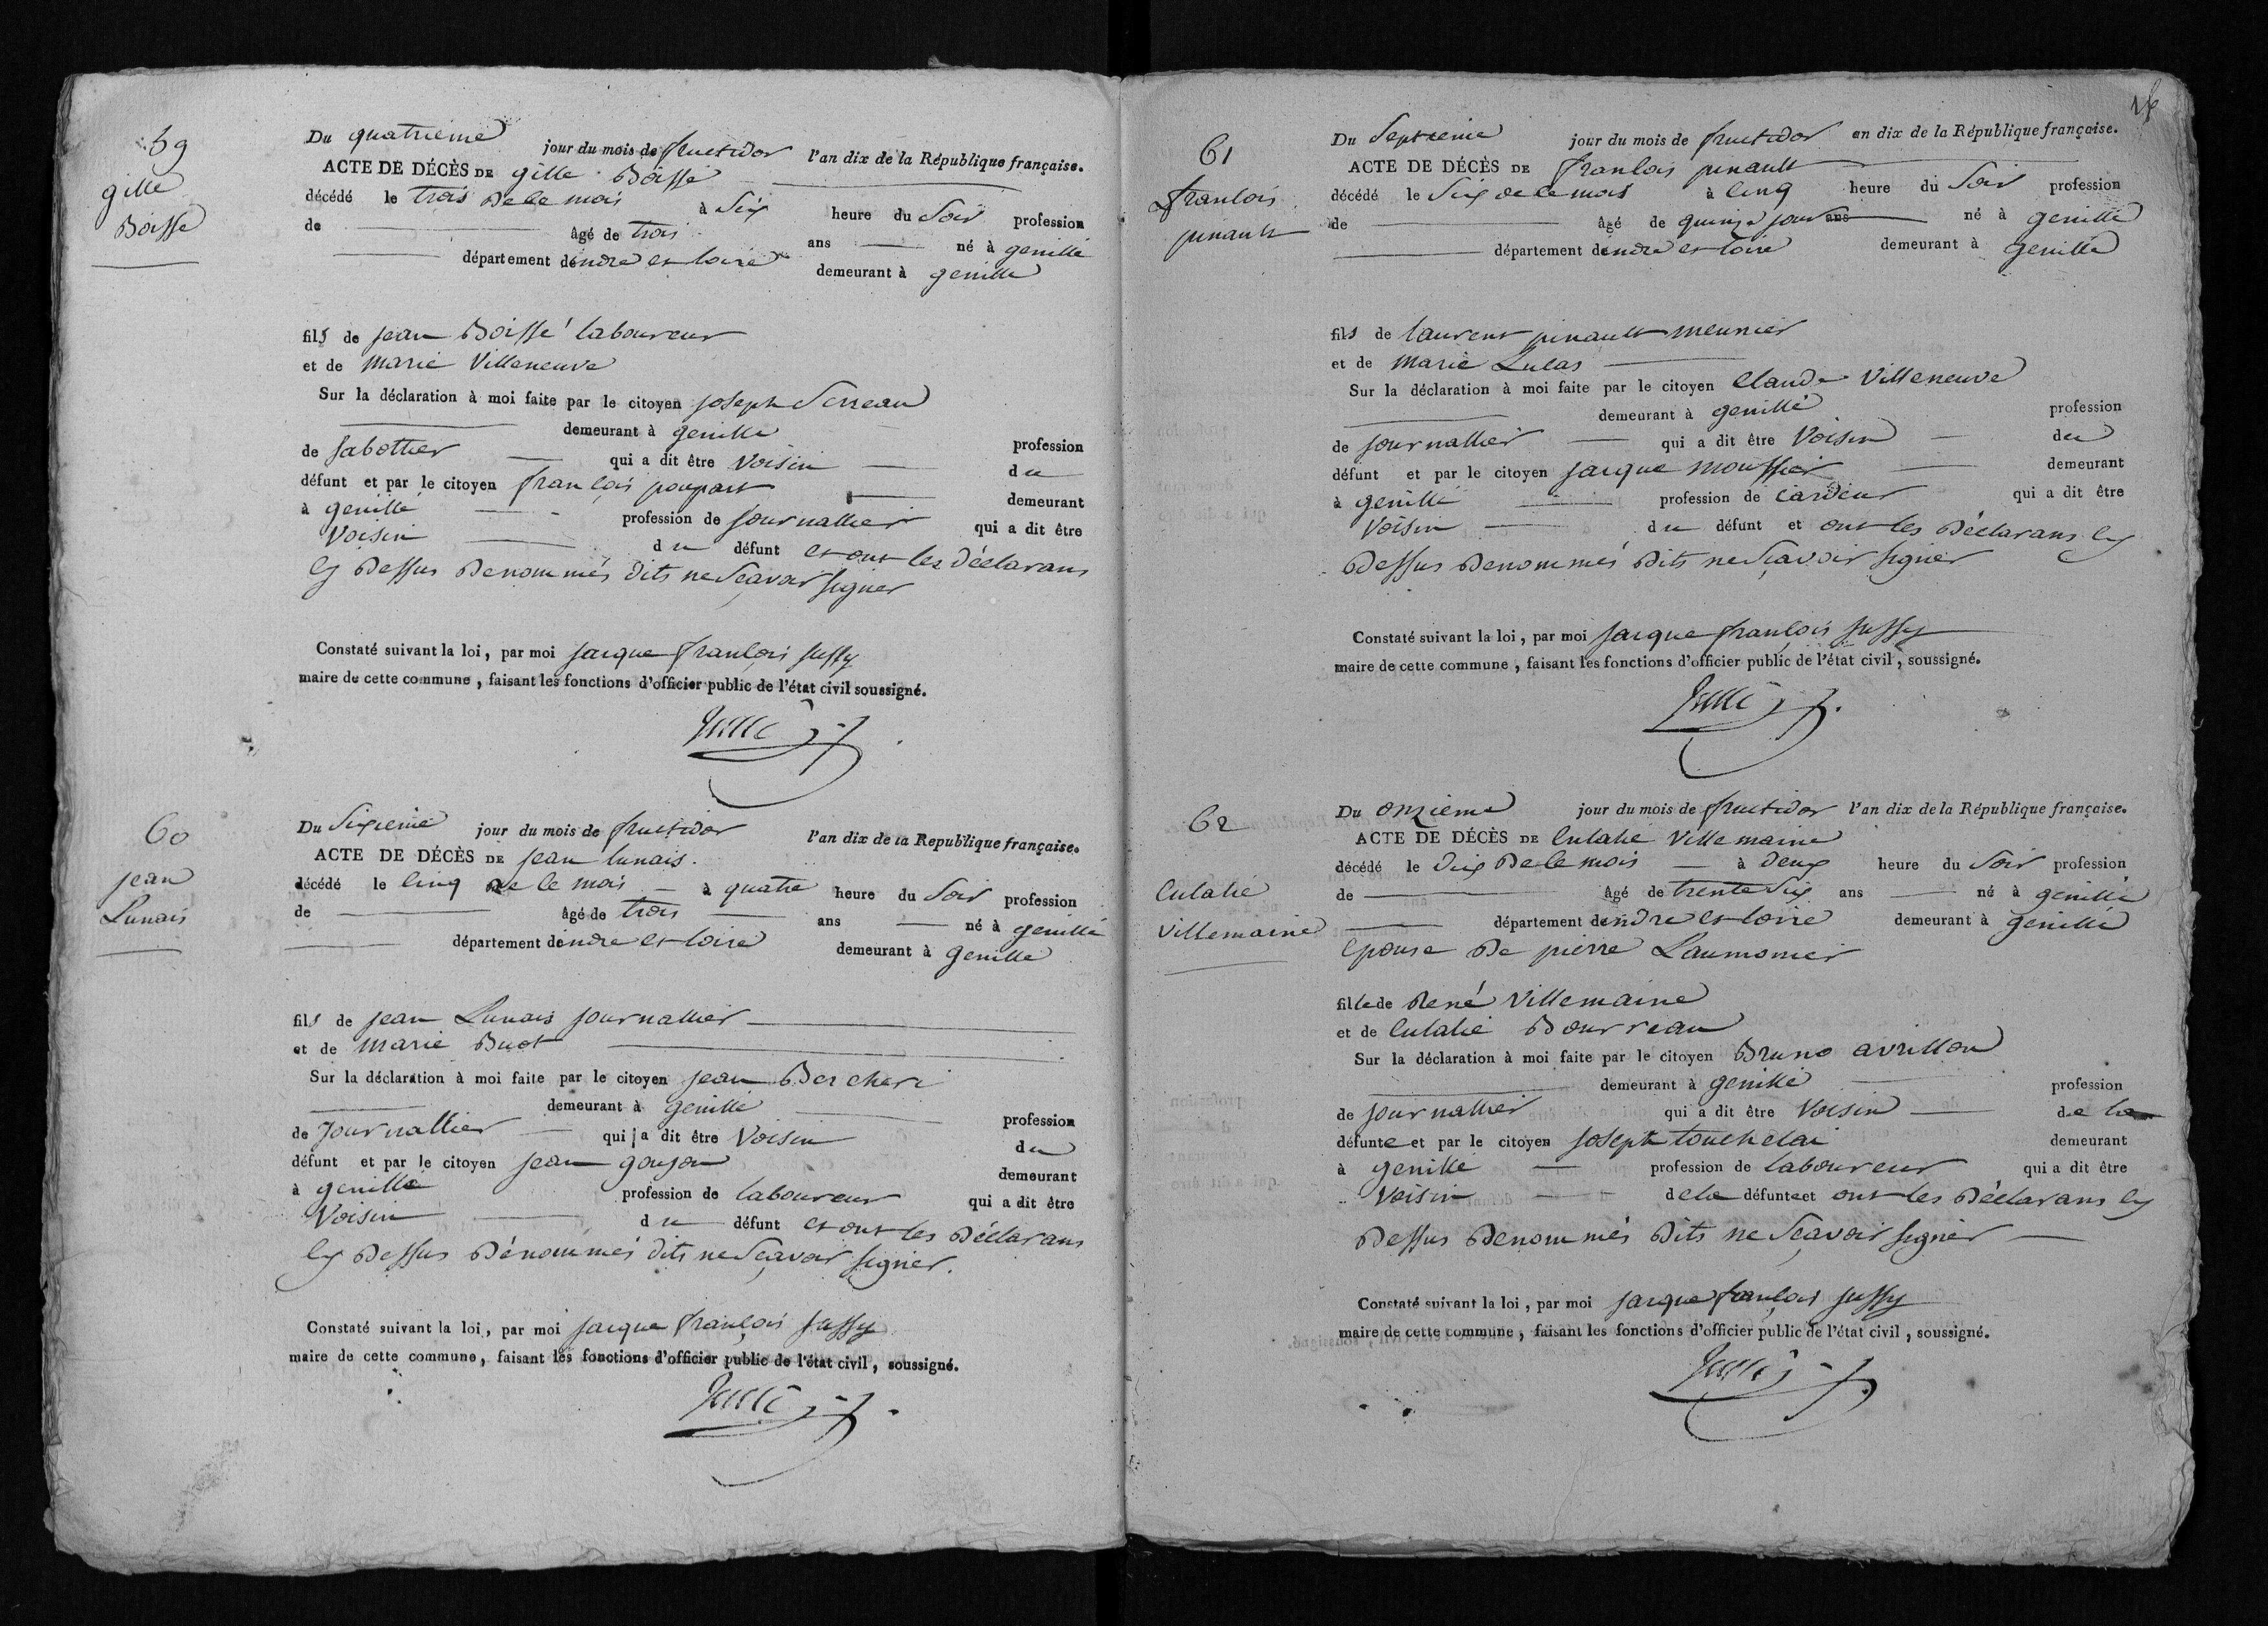 59
gille
Boisse
Du quatrieme jour du mois de fructidor l'an dix de la République française.
ACTE DE DÉCÈS DE gille Boisse
décédé le trois de ce mois à six heure du soir profession
de âgé de trois ans né à genillé
département d'indre et loire demeurant à genillé
fils de jean Boissé laboureur
et de marie Villeneuve
Sur la déclaration à moi faite par le citoyen joseph Serreau
demeurant à genillé profession
de sabottier qui a dit être Voisin du
défunt et par le citoyen françois poupart demeurant
à genillé profession de journallier qui a dit être
Voisin du défunt et ont les déclarans
cy dessus denommés dits ne sçavoir signer
Constaté suivant la loi, par moi jacque françois jussy
maire de cette commune, faisant les fonctions d'officier public de l'état civil soussigné.
60
jean
Lunais
Du sixieme jour du mois de fructidor l'an dix de la Republique française.
ACTE DE DÉCÈS DE jean lunais.
décédé le cinq de ce mois à quatre heure du soir profession
de âgé de trois ans né à genillé
département d'indre et loire demeurant à genillé
fils de jean Lunais journallier
et de marie Buot
Sur la déclaration à moi faite par le citoyen jean Bercheri
demeurant à genillé profession
de journallier qui a dit être Voisin du
défunt et par le citoyen jean goujon demeurant
à genillé profession de laboureur qui a dit être
Voisin du défunt et ont les déclarans
cy dessus dénommés dits ne sçavoir signer.
Constaté suivant la loi, par moi jacque françois jussy
maire de cette commune, faisant les fonctions d'officier public de l'état civil, soussigné.
61
francois
pinault
Du septieme jour du mois de fructidor an dix de la République française.
ACTE DE DÉCÈS DE francois pinault
décédé le six de ce mois à cinq heure du soir profession
de âgé de quinze jour ans né à genillé
département d'indre et loire demeurant à genillé
fils de laurent pinault meunier
et de marie Lucas
Sur la déclaration à moi faite par le citoyen Claude Villeneuve
demeurant à genillé profession
de journallier qui a dit être Voisin du
défunt et par le citoyen jacque moussier demeurant
à genillé profession de cardeur qui a dit être
Voisin du défunt et ont les déclarans cy
dessus denommés dits ne sçavoir signer
Constaté suivant la loi, par moi jacque françois jussy
maire de cette commune, faisant les fonctions d'officier public de l'état civil, soussigné.
62
Eulalie
Villemaine
Du onzieme jour du mois de fructidor l'an dix de la République française.
ACTE DE DÉCÈS DE Eulalie Villemaine
décédé le dix de ce mois à deux heure du soir profession
de âgé de trente six ans né à genillé
département d'indre et loire demeurant à genillé
epouse de pierre Laumonier
fille de René Villemaine
et de Eulalie Bourreau
Sur la déclaration à moi faite par le citoyen Bruno avrillon
demeurant à genillé profession
de journallier qui a dit être Voisin de la
défunte et par le citoyen joseph touchelai demeurant
à genillé profession de laboureur qui a dit être
Voisin de la défunte et ont les déclarans cy
dessus denommés dits ne sçavoir signer
Constaté suivant la loi, par moi jacque françois jussy
maire de cette commune, faisant les fonctions d'officier public de l'état civil, soussigné.